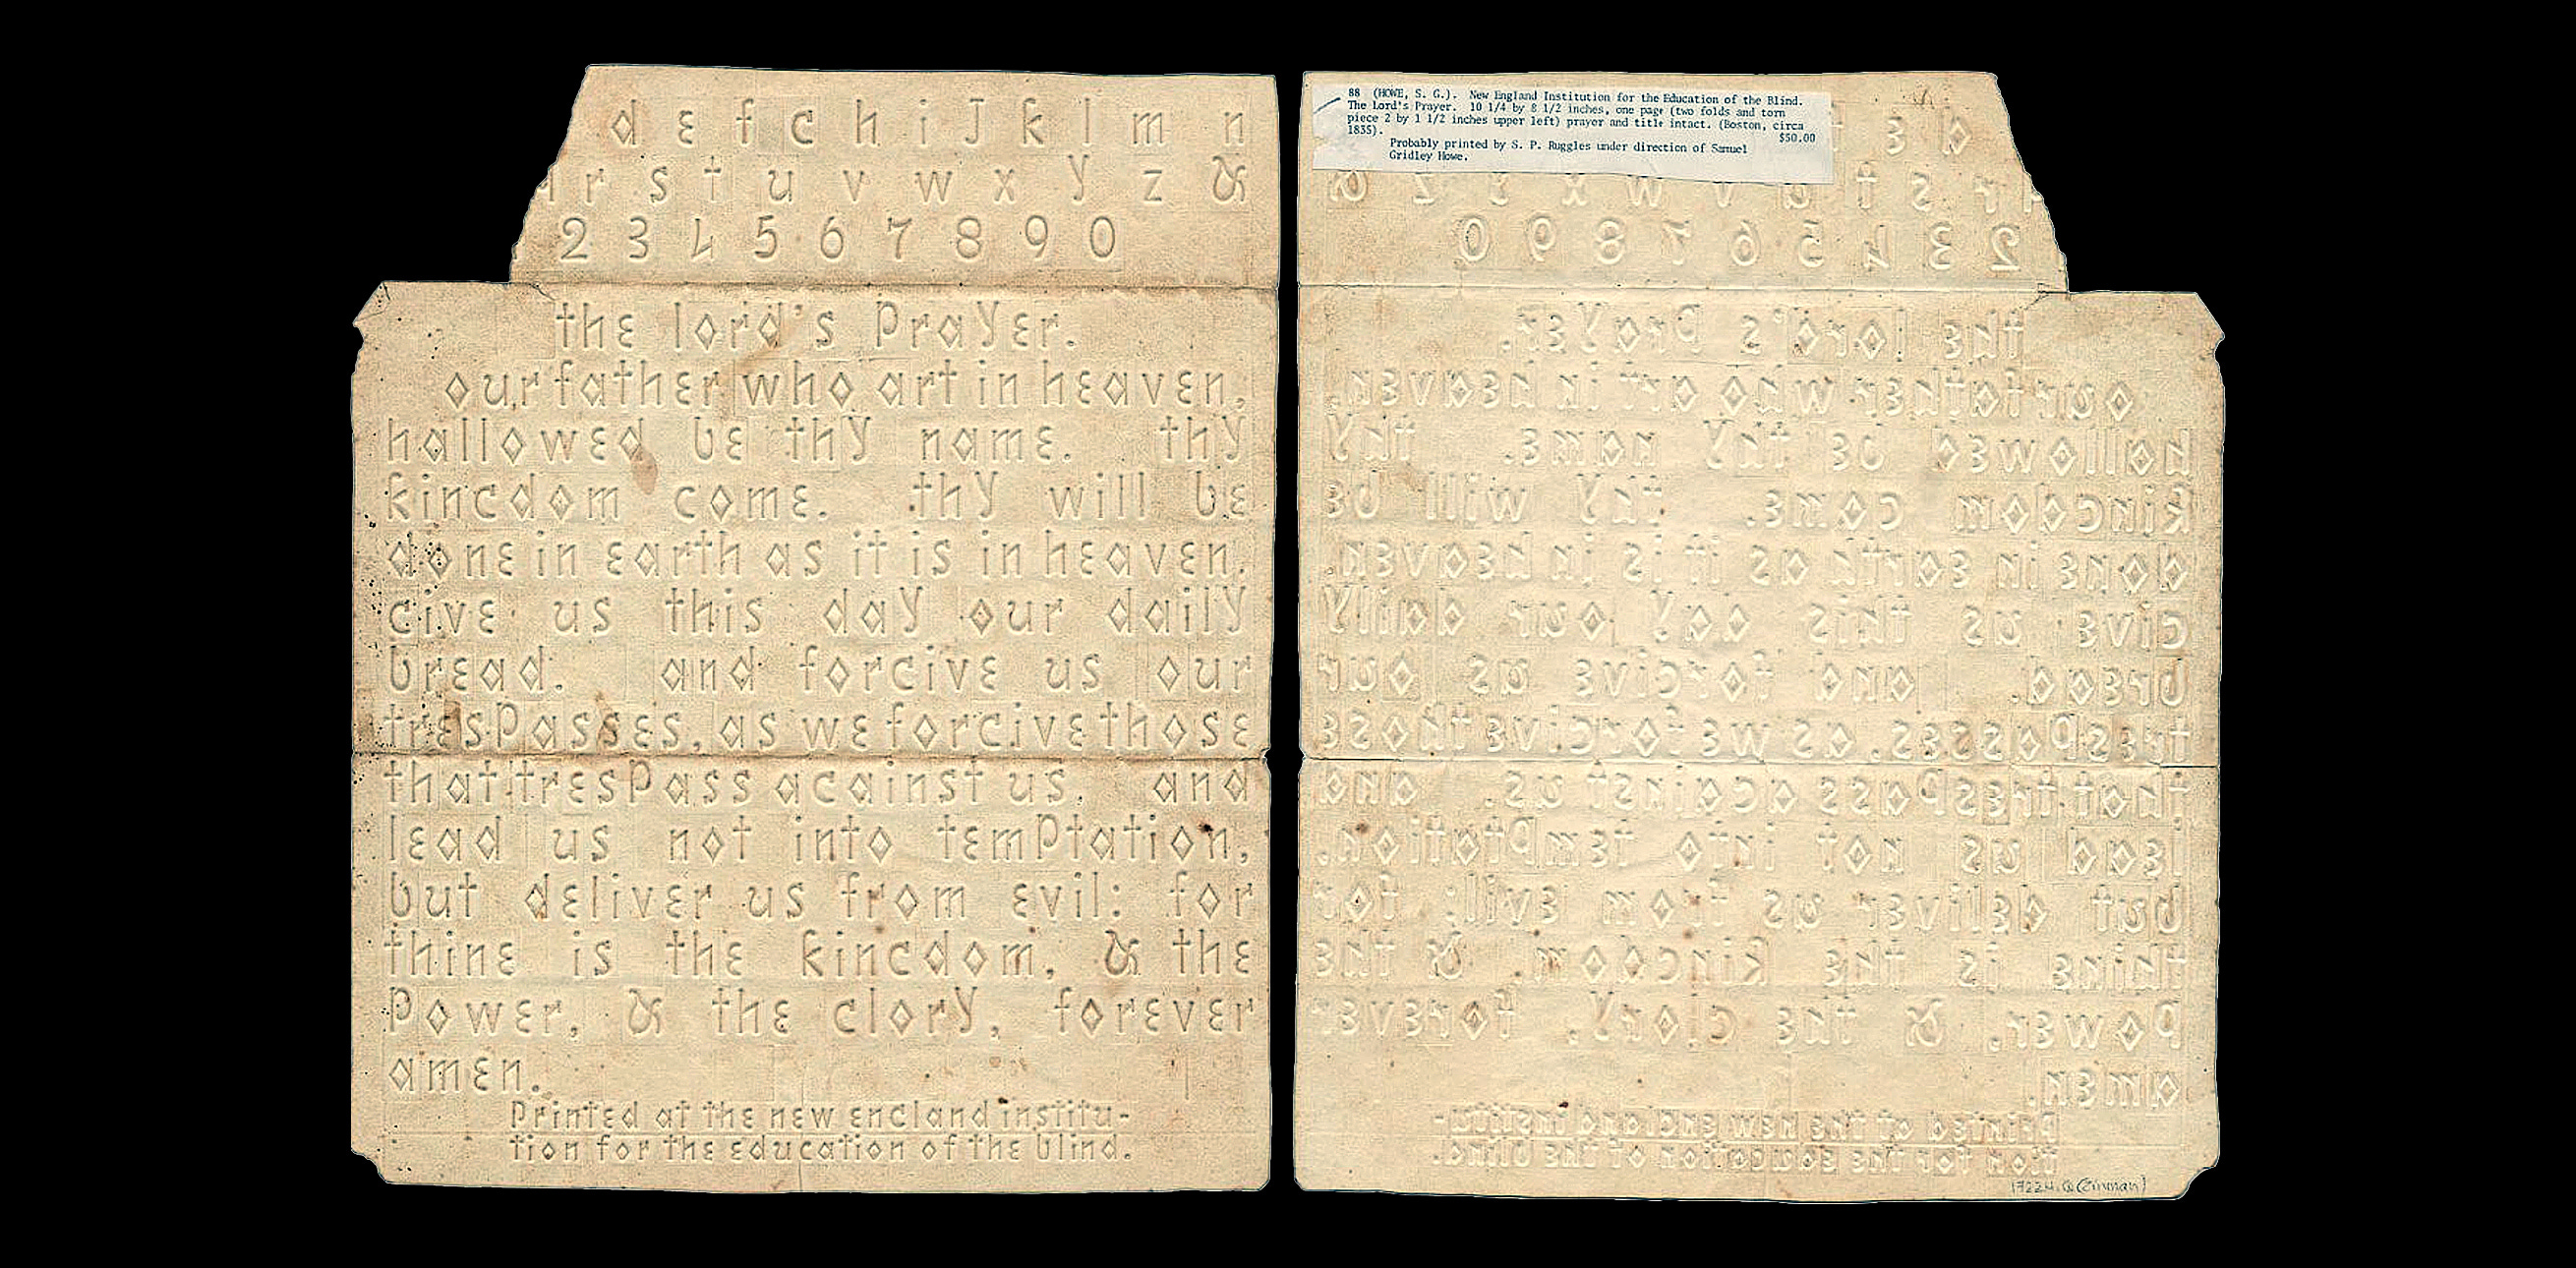 d e f g h i j k l m n
r s t u v w x y z &
2 3 4 5 6 7 8 9 0
the lord's prayer.
our father who art in heaven,
hallowed be thy name. thy
kingdom come. thy will be
done in earth as it is in heaven.
give us this day our daily
bread. and forgive us our
trespasses, as we forgive those
that trespass against us. and
lead us not into temptation,
but deliver us from evil: for
thine is the kingdom, & the
power, & the glory, forever
amen.
printed at the new england institu-
tion for the education of the blind.
88 (HOWE, S. G.). New England Institution for the Education of the Blind.
The Lord's Prayer. 10 1/4 by 8 1/2 inches, one page (two folds and torn
piece 2 by 1 1/2 inches upper left) prayer and title intact. (Boston, circa
1835). $50.00
Probably printed by S. P. Ruggles under direction of Samuel
Gridley Howe.
(Zinman)